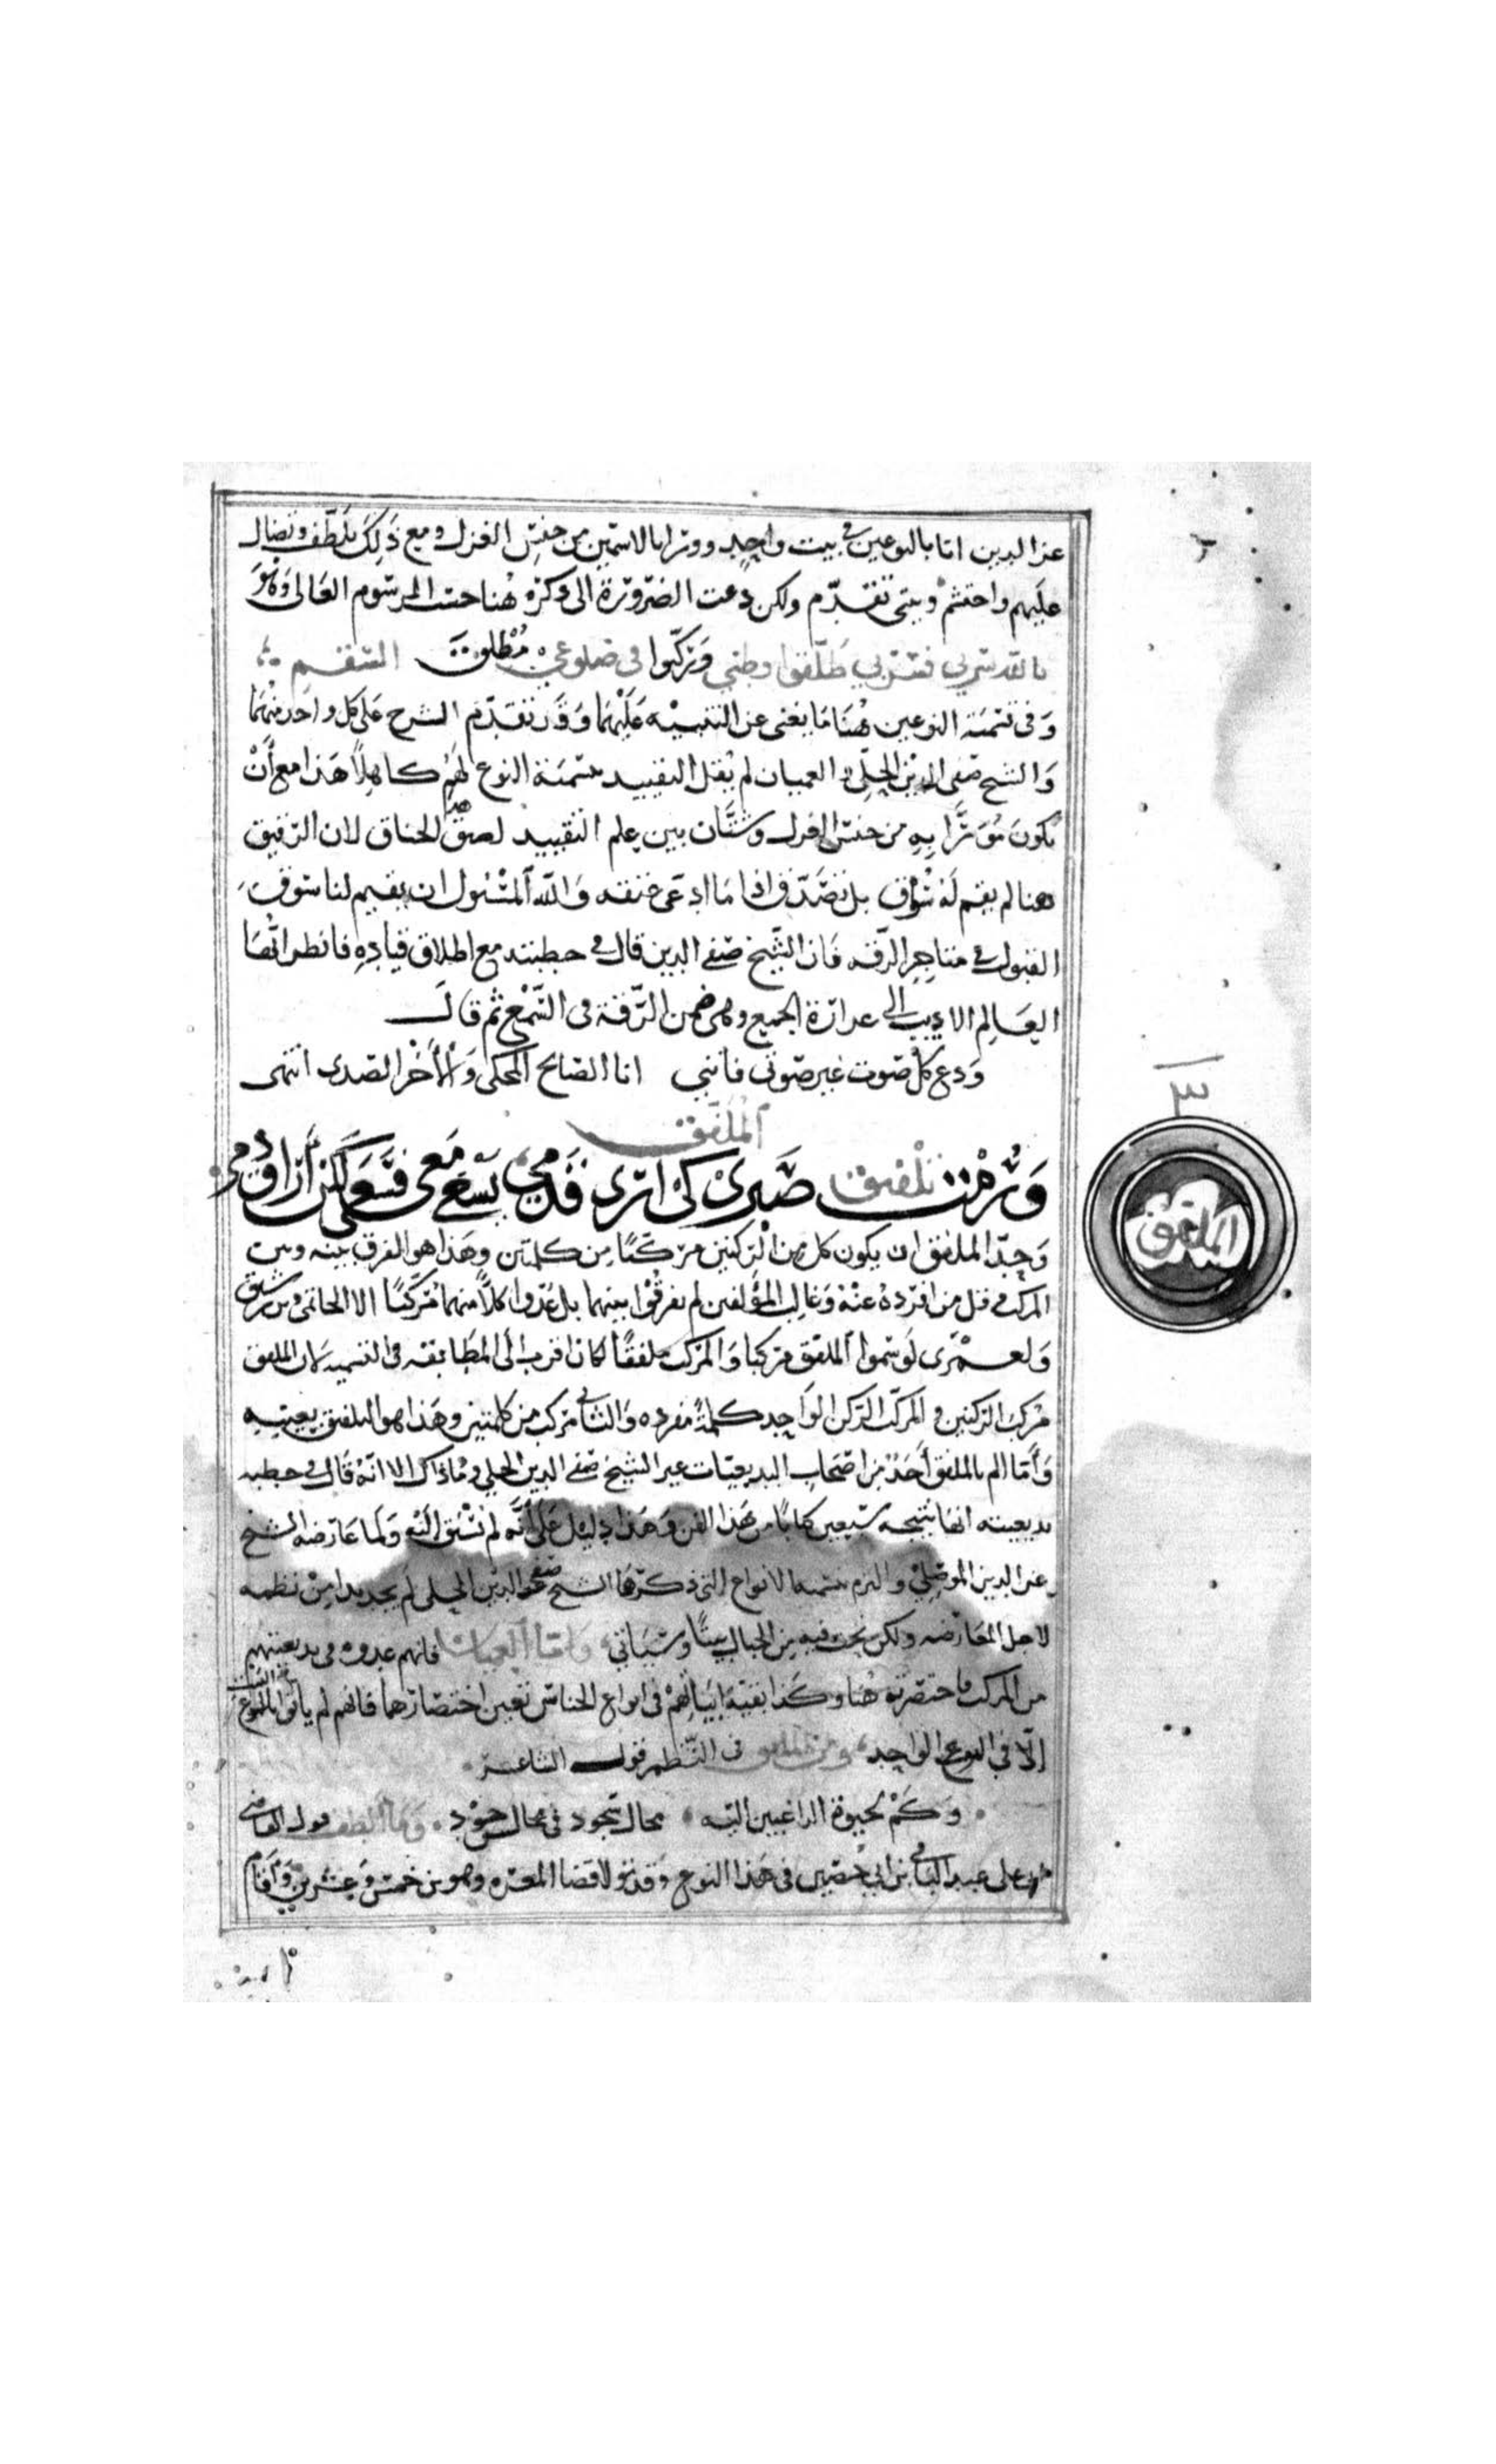 عز الدين اتا بالنوعين في بيت واحد وورا بالاسمين من جنس الغزل ومع ذلك تلطف وتضال
عليهم واحتشم وبيتي تقدم ولكن دعت الضرورة الى ذكره هنا حسب المرسوم العالى وهو
بالله سر بي فسربي طلقوا وطني وركبوا في ضلوعي مطلق السقم
وفي تسمية النوعين هنا ما يغنى عن التنبيه عليهما وقد تقدم الشرح على كل واحد منهما
والشيخ صفي الدين الحلي والعميان لم يثقل التقييد بتسمية النوع لهم كاهلا هذا مع أن
يكون مورّا به من جنس الغزل وشتان بين علم التقييد لضيق الخناق لان الترفيق
هنا لم يقم له سوق بل تصدق اذا ما ادعى خنقه والله المسئول ان يقيم لنا سوق
القبول في متاجر الرقة فان الشيخ صفي الدين قال في خطبته مع اطلاق قياده فانظر ايها
العالم الاديب الى غزارة الجمع وهي ضمن الرقة في السمع ثم قال
ودع كل صوت غير صوتي فانني انا الصايح المحكى والاخر الصدى انتهى
الملفق
ورمت تلفيق صبري كي ارى قدمي يسعى معي فسعى لكن أراق دمي
الملفق
وحد الملفق ان يكون كل من الركنين مركبا من كلمتين وهذا هو الفرق بينه وبين
المركب وقل من افرده عنه وغالب المؤلفين لم يفرقوا بينهما بل عدوا كلا منهما مركبا الا الحاتمي وبن رشيق
ولعمرى لو سموا الملفق مركبا والمركب ملفقا لكان اقرب الى المطابقة في التسمية لان الملفق
مركب الركنين والمركب الركن الواحد كلمة مفردة والثاني مركب من كلمتين وهذا هو التلفيق بعينه
وأما الم بالملفق أحد من اصحاب البديعيات غير الشيخ صفي الدين الحلي وما ذاك الا انه قال في خطبة
بديعيته انها نتيجة سبعين كتابا من هذا الفن وهذا دليل على أنه لم تسبق اليه ولما عارضه الشيخ
عز الدين الموصلي والتزم بتسمية الانواع التي ذكرها الشيخ صفي الدين الحلي لم يجد بدا من نظمه
لاجل المعارضة ولكن نحت فيه من الجبال بيتا وسياتي واما العميان فانهم عدوه في بديعيتهم
من المركب فاختصرته هنا وكذا بقية ابياتهم في انواع الجناس تعين اختصارها فانهم لم ياتوا بالنوع
إلا في النوع الواحد ومن الملفق في النظم قول الشاعر
وكم لجبهة الراغبين اليه مجال سجود في مجالس جود وما الطف قول القاضي
على عبد الباقي بن ابي حصين في هذا النوع وقد تولا قضا المعرة وهو بن خمس وعشرين وأقام